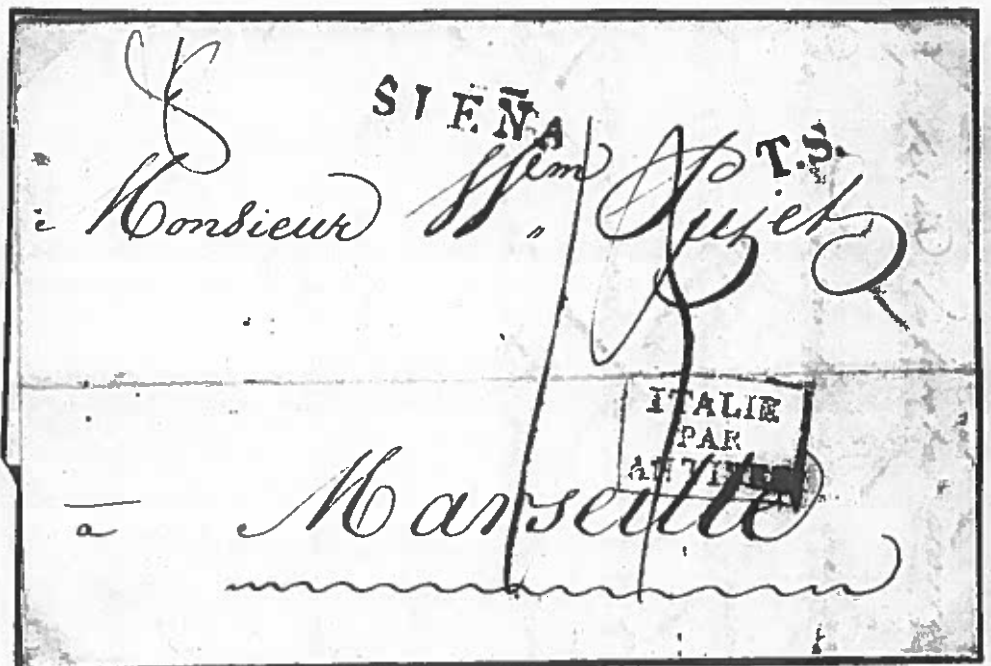 SIEÑA
T.S.
Monsieur Wem Pujet
ITALIE
PAR
ANTIBES
a Marseille